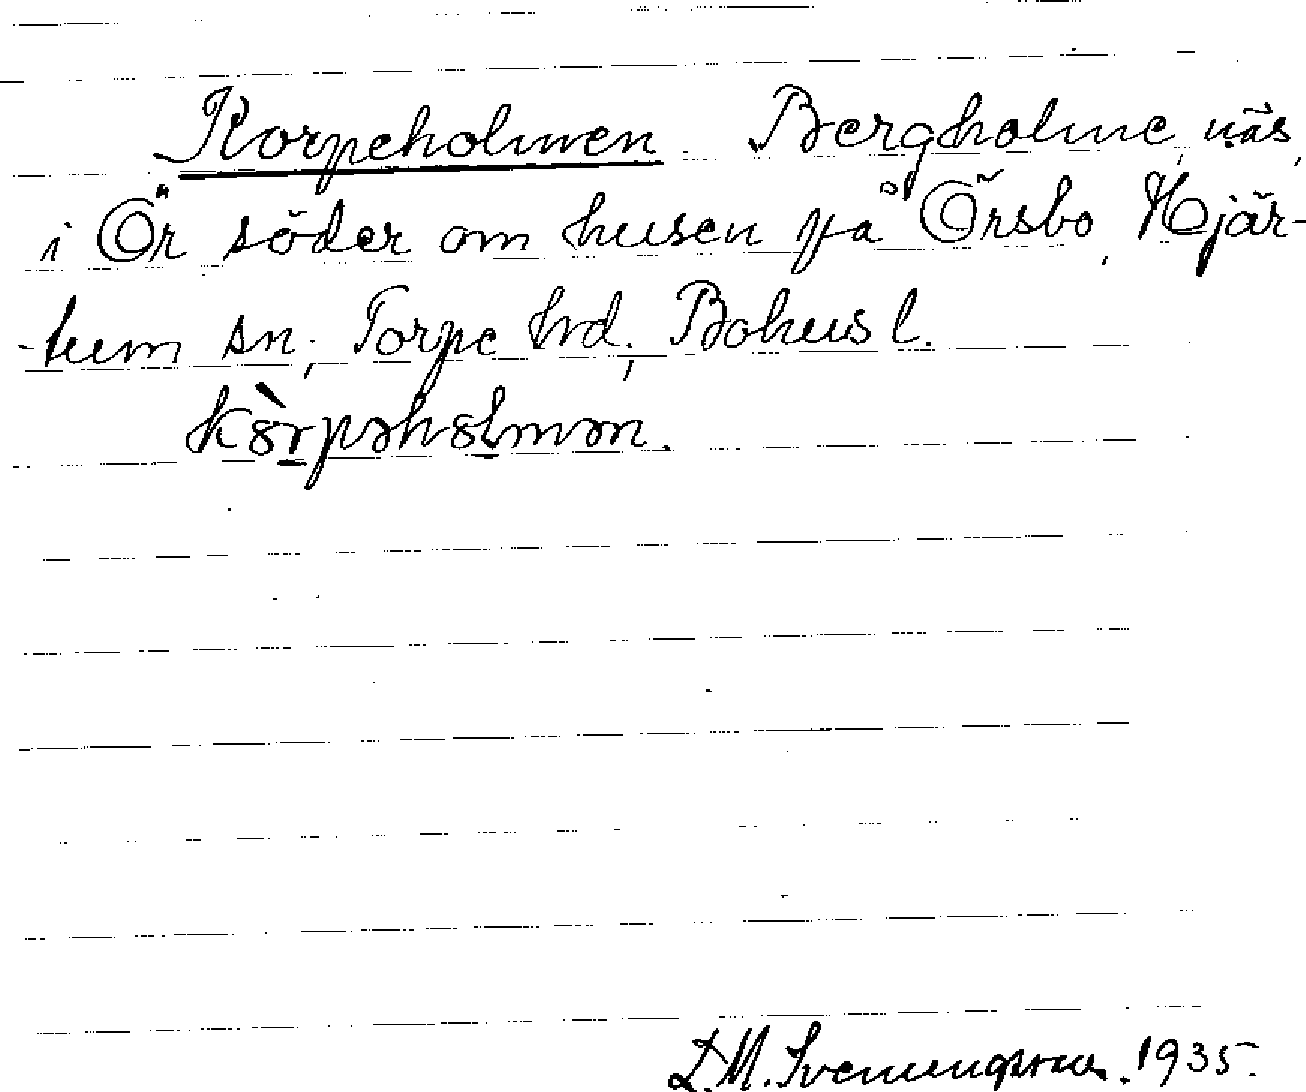 Korpeholmen. Bergholme, näs,
i Ör söder om husen på Örsbo, Hjär-
-tum sn; Torpe hrd; Bohus l.
kòrpəholmən.
L.M. Svenungsson. 1935.